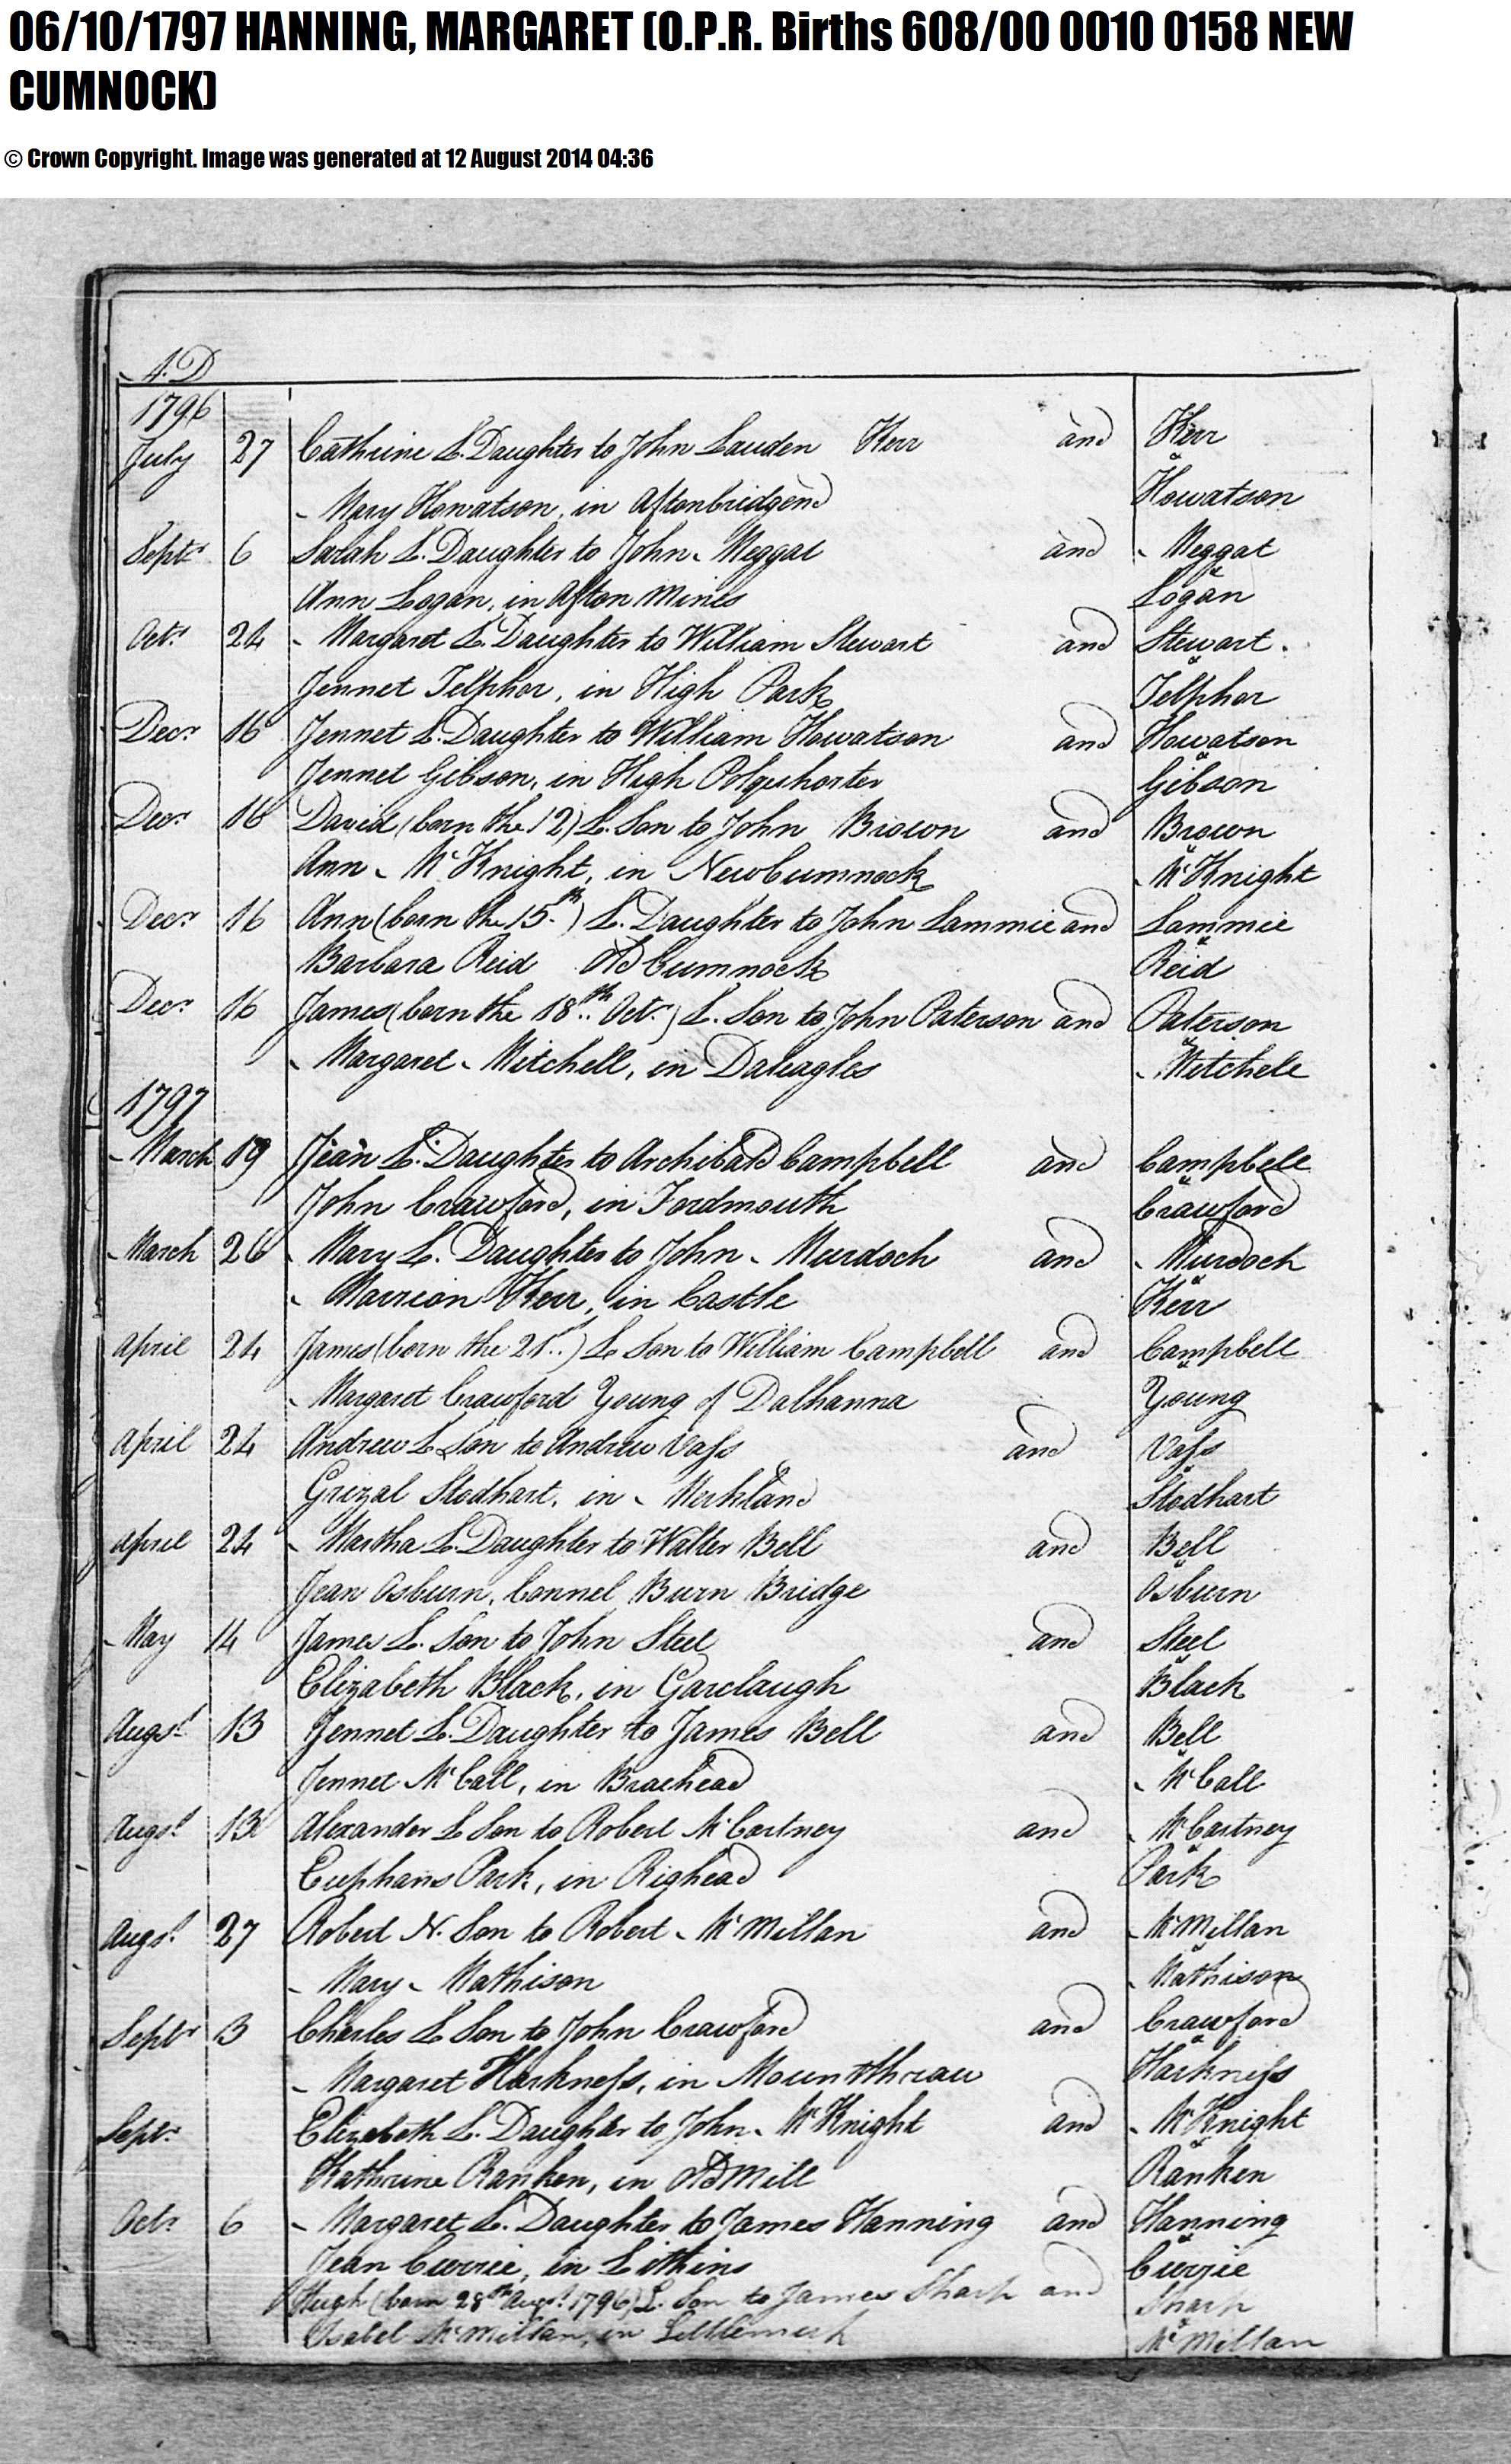 06/10/1797 HANNING, MARGARET (O.P.R. Births 608/00 0010 0158 NEW
CUMNOCK)
© Crown Copyright. Image was generated at 12 August 2014 04:36
A.D
1796
July 27 Cathrine L. Daughter to John Lauden Kerr and Kerr
Mary Howatson, in Aftonbridgend Howatson
Septr 6 Sarah L. Daughter to John Meggat and Meggat
Ann Logan, in Afton Mines Logan
Octr 24 Margaret L. Daughter to William Stewart and Stewart.
Jennet Telpher, in High Park Telpher
Decr 16 Jennet L. Daughter to William Howatson and Howatson
Jennet Gibson, in High Polquhorter Gibson
Decr 16 David (born the 12) L. Son to John Brown and Brown
Ann McKnight, in New Cumnock McKnight
Decr 16 Ann (born the 15th) L. Daughter to John Lammie and Lammie
Barbara Reid Old Cumnock Reid
Decr 16 James (born the 18th Octr) L. Son to John Paterson and Paterson
Margaret Mitchell, in Daleagles Mitchell
1797
March 19 Jean L. Daughter to Archibald Campbell and Campbell
John Crawford, in Fordmouth Crawford
March 26 Mary L. Daughter to John Murdoch and Murdoch
Marrion Kerr, in Castle Kerr
April 24 James (born the 21st) L Son to William Campbell and Campbell
Margaret Crawford Young of Dalhanna Young
April 24 Andrew L Son to Andrew Vass and Vass
Grizal Stodhart, in Merkland Stodhart
April 24 Martha L. Daughter to Walter Bell and Bell
Jean Osburn, Connel Burn Bridge Osburn
May 14 James L. Son to John Steel and Steel
Elizabeth Black, in Garclaugh Black
Augst 13 Jennet L. Daughter to James Bell and Bell
Jennet McCall, in Braehead McCall
Augst 13 Alexander L Son to Robert McCartney and McCartney
Euphans Park, in Righead Park
Augst 27 Robert N. Son to Robert McMillan and McMillan
Mary Mathison Mathison
Septr 3 Charles L Son to John Crawford and Crawford
Margaret Harkness, in Mountthraw Harkness
Septr Elizabeth L. Daughter to John McKnight and McKnight
Kathrine Ranken, in Old Mill Ranken
Octr 6 Margaret L. Daughter to James Hanning and Hanning
Jean Currie, in Lithins Currie
Hugh (born 28th Augst 1796) L. Son to James Sharp and Sharp
Isabel McMillan, in Littlemark McMillan